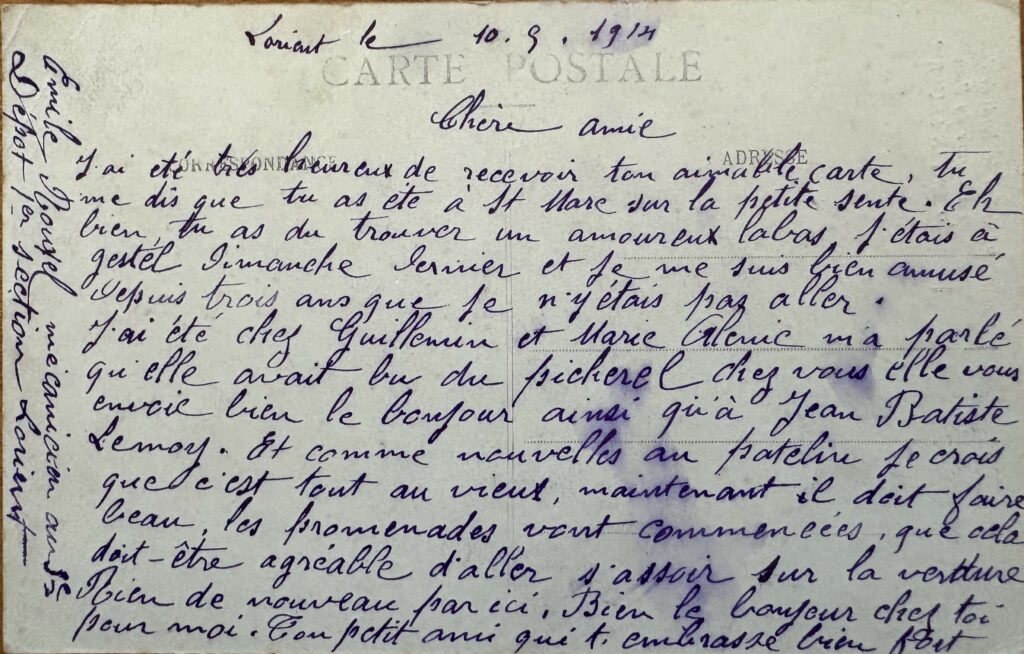 Lorient le 10.9.1914
CARTE POSTALE
Chère amie
CORRESPONDANCE
ADRESSE
J'ai été très heureux de recevoir ton aimable carte, tu
me dis que tu as été à St Marc sur la petite sente. Eh
bien, tu as du trouver un amoureux labas j'étais à
gestel Dimanche dernier et je me suis bien amusé
Depuis trois ans que je n'y étais pas aller.
J'ai été chez Guillemin et Marie m'a parlé
qu'elle avait bu du picherel chez vous elle vous
envoie bien le bonjour ainsi qu'à Jean Batiste
Lemoy. Et comme nouvelles au patelin je crois
que c'est tout au vieux, maintenant il doit faire
beau, les promenades vont commencées, que cela
doit-être agréable d'aller s'assoir sur la
Rien de nouveau par ici. Bien le bonjour chez toi
pour moi. Ton petit ami qui t'embrasse bien fort
Emile mécanicien au
Dépot section Lorient